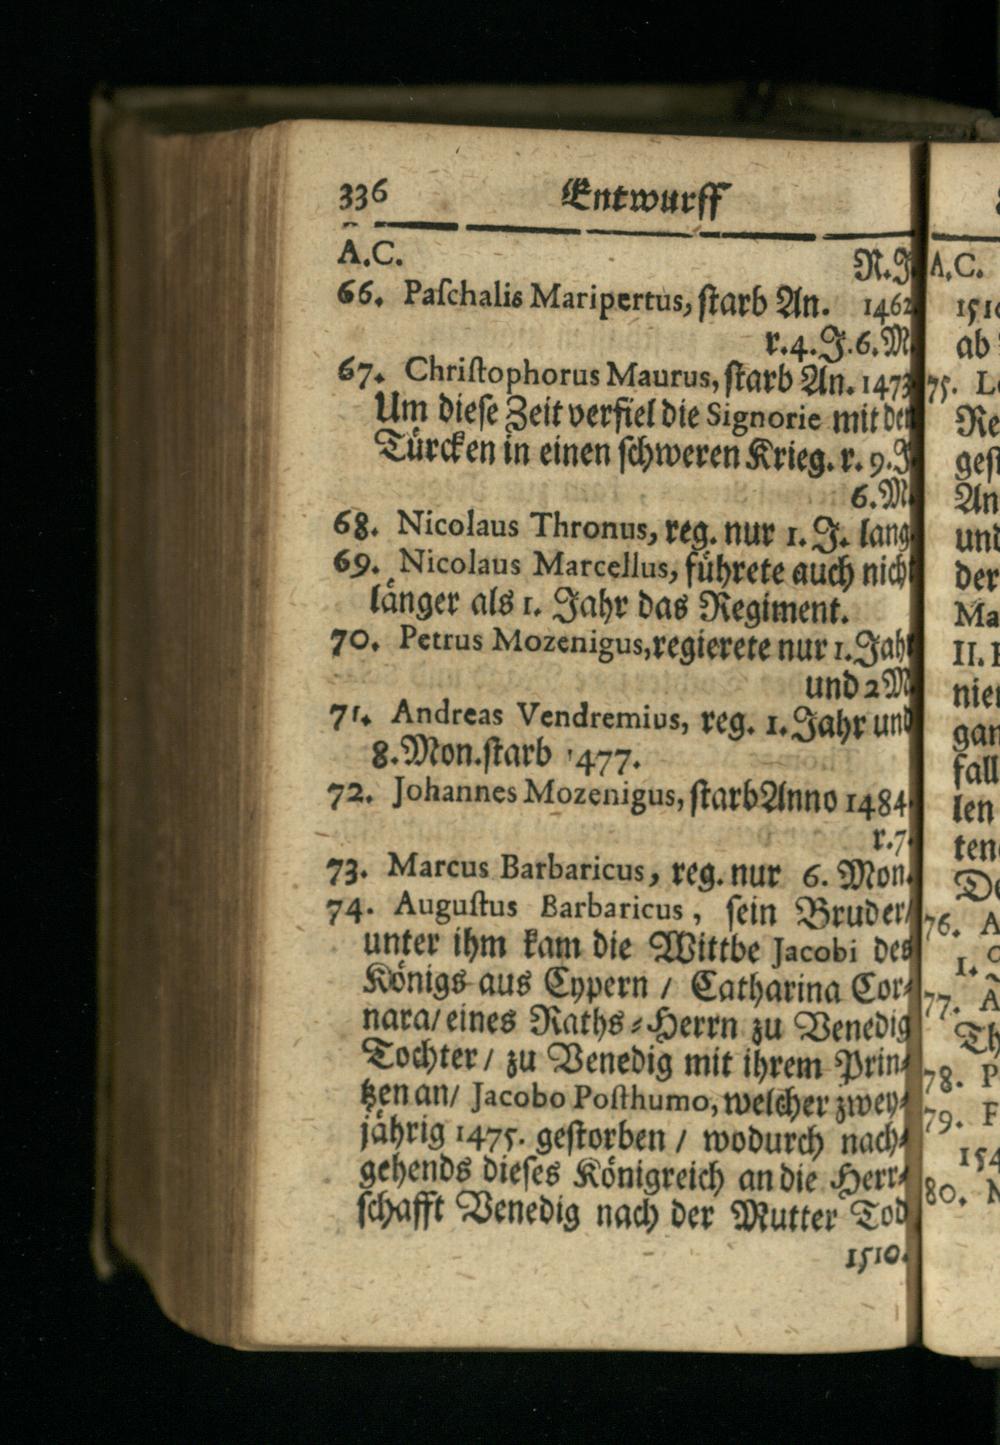 336 Entwurff
A.C. R.J
66. Paſchalis Maripertus, ſtarb An. 1462
r.4.J.6.M.
67. Chriſtophorus Maurus, ſtarb An. 1473
Um dieſe Zeit verfiel die Signorie mit den
Türcken in einen ſchweren Krieg. r. 9.J
6.M.
68. Nicolaus Thronus, reg. nur 1. J. lang
69. Nicolaus Marcellus, führete auch nicht
länger als 1. Jahr das Regiment.
70. Petrus Mozenigus, regierete nur 1. Jahr
und 2 M
71. Andreas Vendremius, reg. 1. Jahr und
8. Mon. ſtarb 1477.
72. Johannes Mozenigus, ſtarb Anno 1484
r.7.
73. Marcus Barbaricus, reg. nur 6. Mon.
74. Auguſtus Barbaricus, ſein Bruder/
unter ihm kam die Wittbe Jacobi des
Königs aus Cypern / Catharina Cor⸗
nara/ eines Raths⸗Herrn zu Venedig
Tochter / zu Venedig mit ihrem Prin⸗
tzen an/ Jacobo Poſthumo, welcher zwey⸗
jährig 1475. geſtorben / wodurch nach⸗
gehends dieſes Königreich an die Herr⸗
ſchafft Venedig nach der Mutter Tod
1510.
A.C.
ab
75.
Re
geſ
An
und
der
Ma
II.
nie
gan
fall
len
ten
De
76. A
1.
77. A
Th
78. P
79. F
154
80.